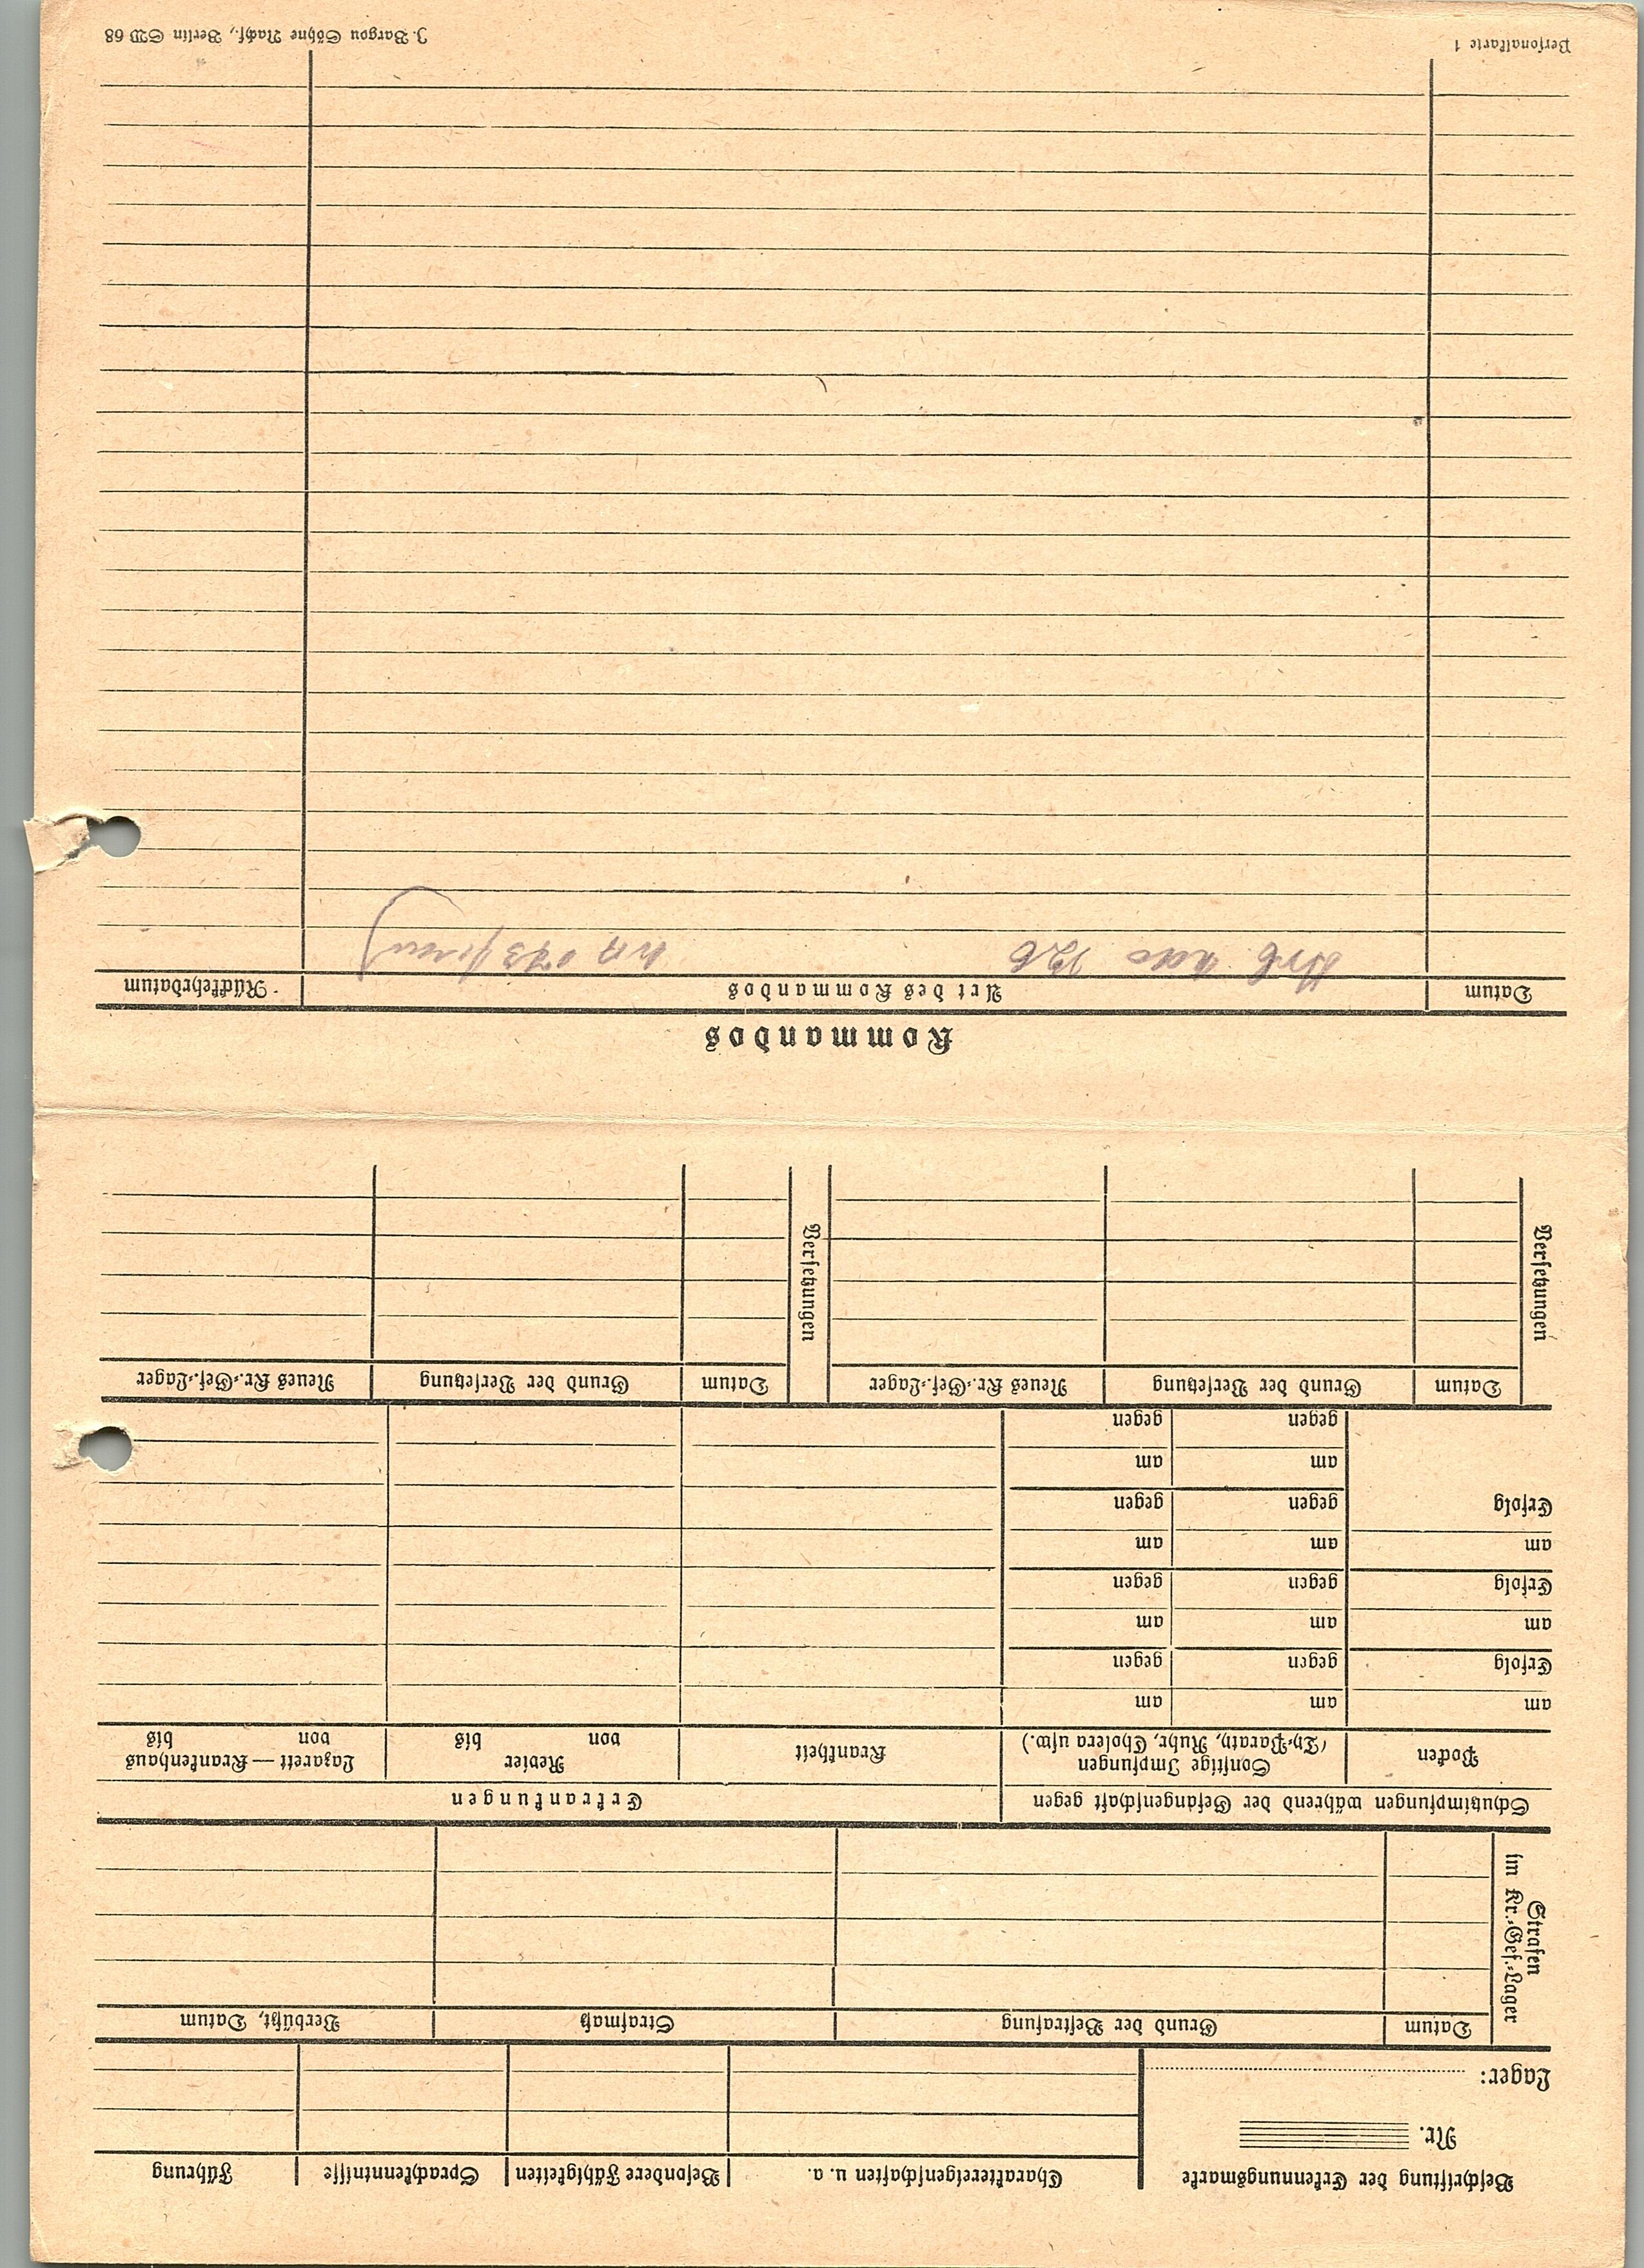 Beschriftung der Erkennungsmarke
Nr.
Lager:
Charaktereigenschaften u. a.
Besondere Fähigkeiten
Sprachkenntnisse
Führung
Strafen
im Kr.-Gef.-Lager
Datum
Grund der Bestrafung
Strafmaß
Verbüßt, Datum
Schutzimpfungen während der Gefangenschaft gegen
Erkrankungen
Pocken
Sonstige Impfungen
(Ty.-Paraty, Ruhr, Cholera usw.)
Krankheit
Revier
von bis
Lazarett — Krankenhaus
von bis
am am am
Erfolg gegen gegen
am am am
Erfolg gegen gegen
am am am
Erfolg gegen gegen
am am
gegen gegen
Versetzungen
Datum
Grund der Versetzung
Neues Kr.-Gef.-Lager
Versetzungen
Datum
Grund der Versetzung
Neues Kr.-Gef.-Lager
Kommandos
Datum
Art des Kommandos
Rückkehrdatum
Personalkarte 1
J. Bargou Söhne Nachf., Berlin SW 68